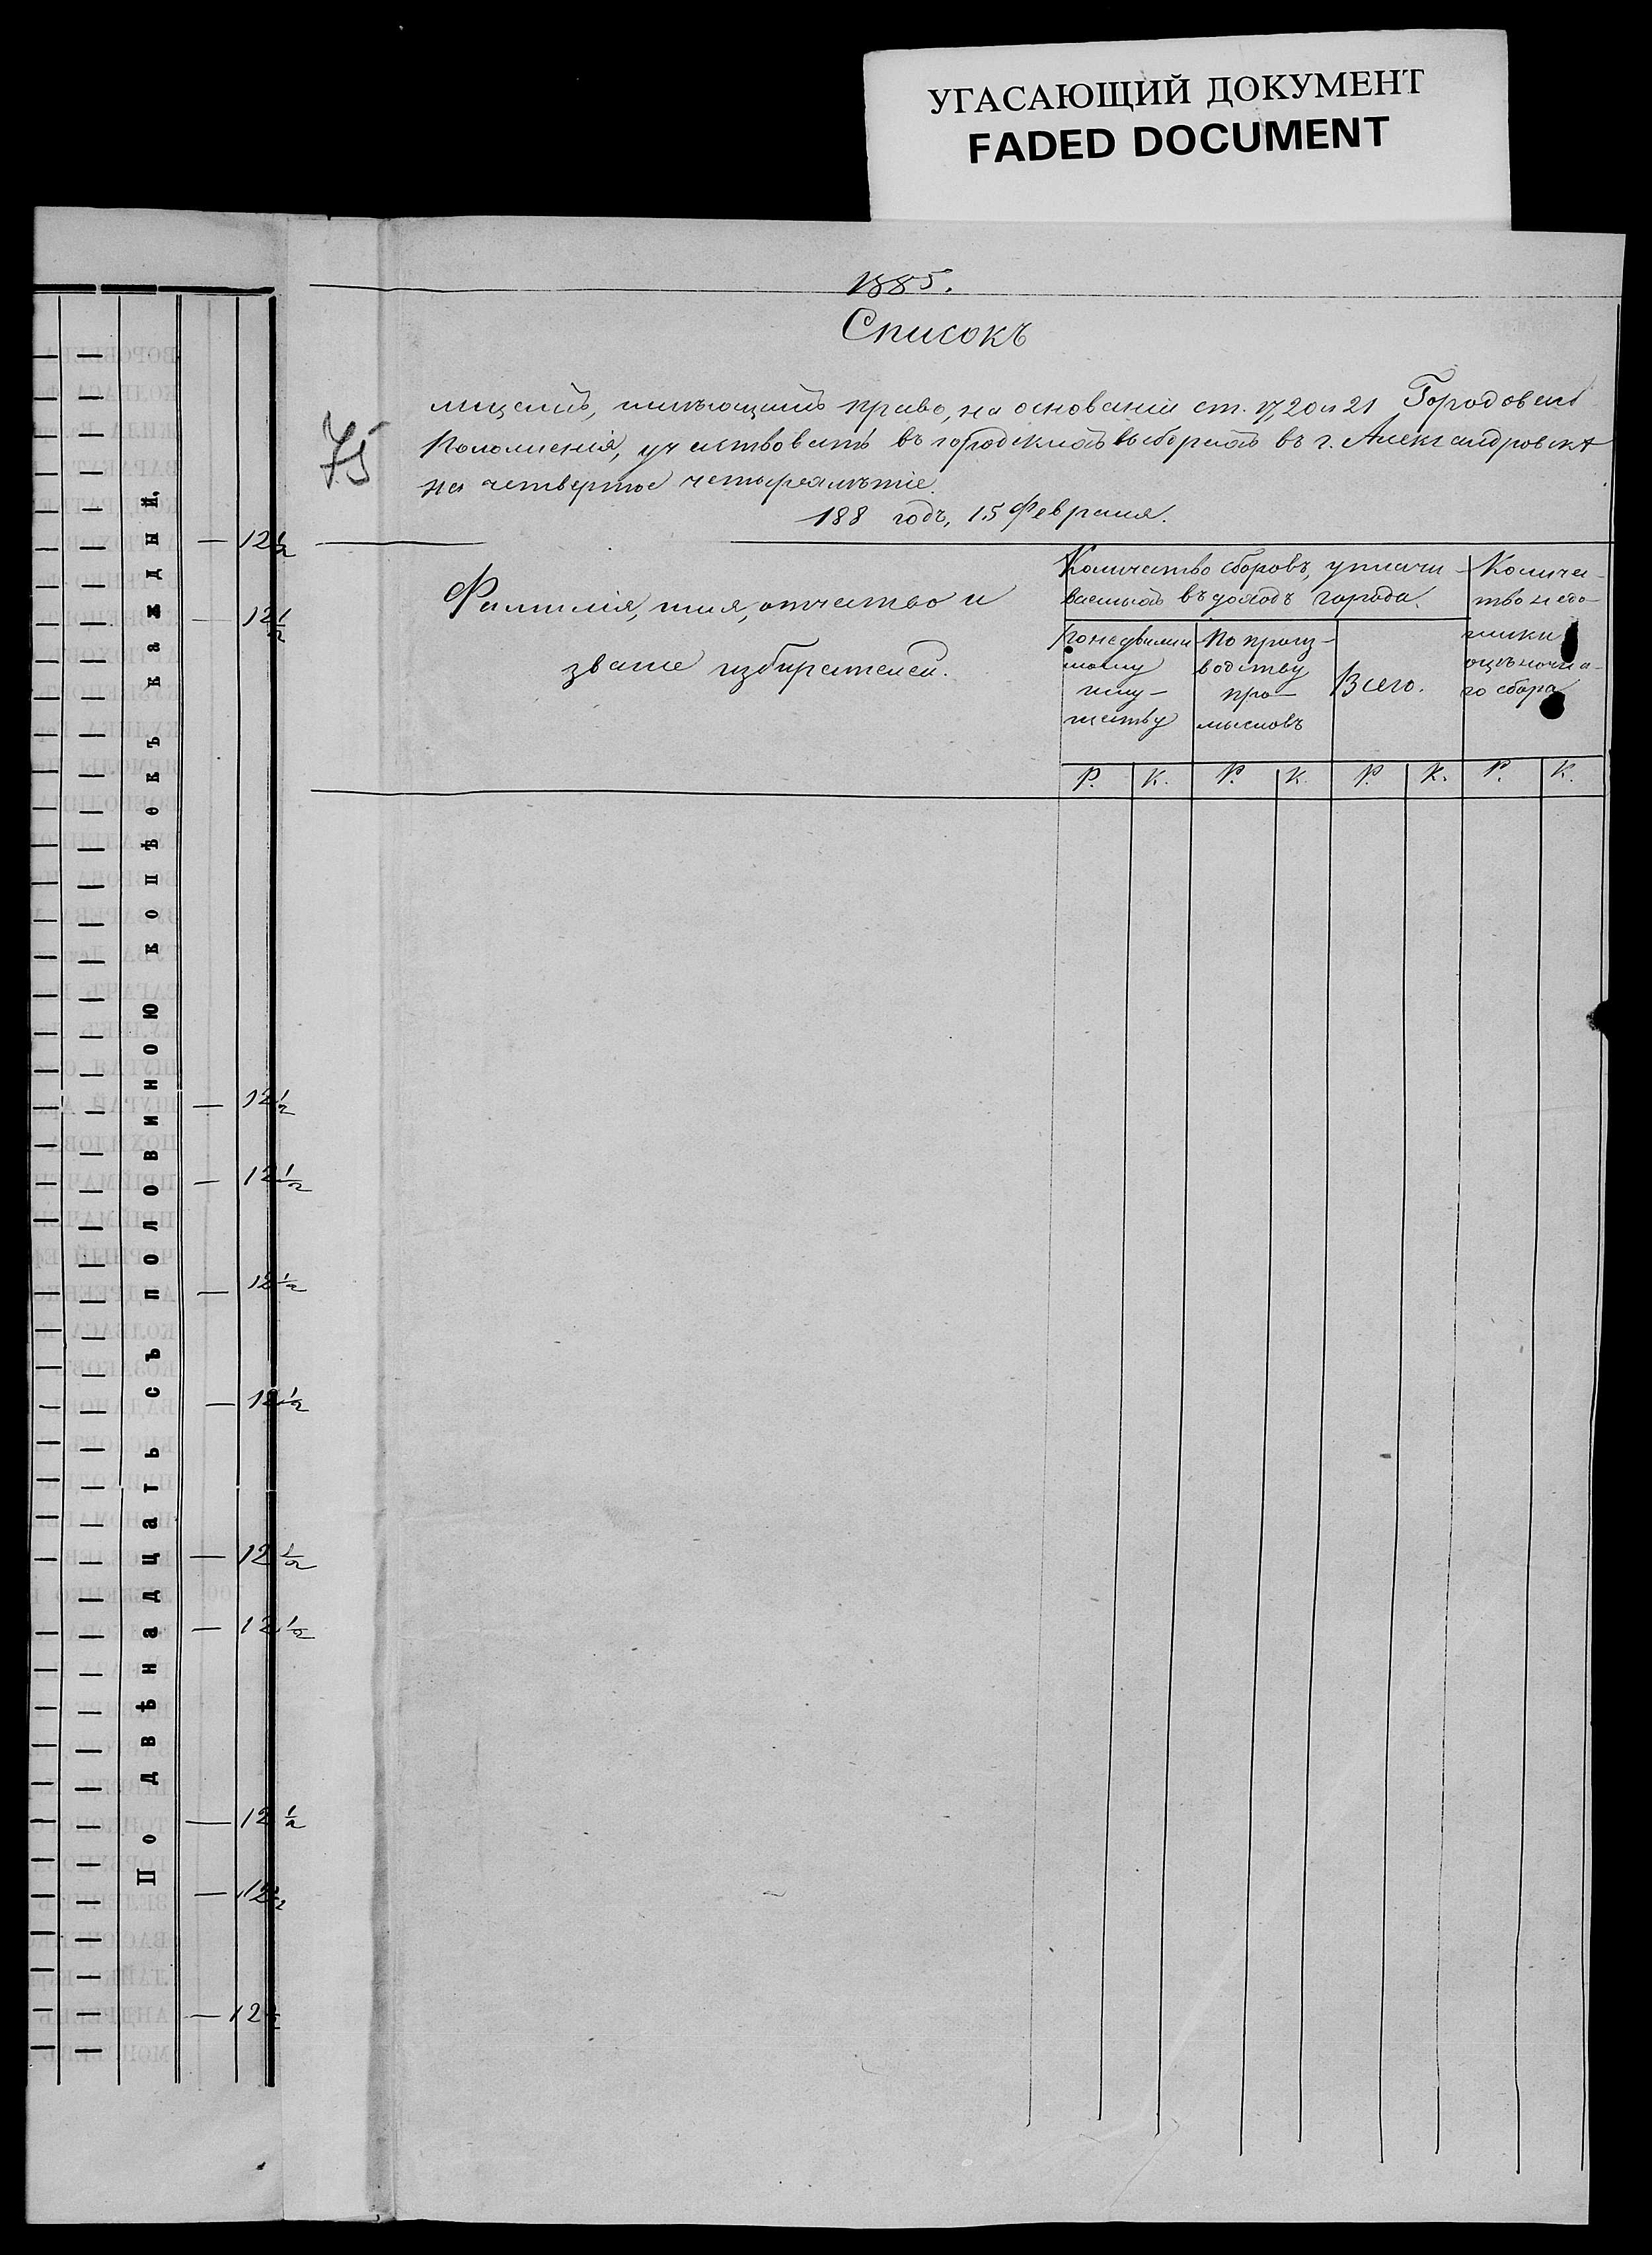 УГАСАЮЩИЙ ДОКУМЕНТ
FADED DOCUMENT
1885.
Списокъ
75
лицамъ, имѣющимъ право, на основаніи ст. 17, 20 и 21 Городоваго
Положенія, участвовать въ городскихъ выборахъ въ г. Александровскѣ
на четвертое четырехлѣтіе.
188 годъ, 15 Февраля.
Фамилія, имя, отчество и
званіе избирателей.
Количество сборовъ, уплачи-
ваемыхъ въ доходъ города.
По недвижи
мому
иму-
ществу
По произ-
водству
про-
мысловъ
Всего.
Количес-
тво недо-
имки
оцѣночна-
го сбора
Р. К. Р. К. Р. К. Р. К.
По двѣнадцать съ половиною копѣекъ каждый.
— 12 1/2
— 12 1/2
— 12 1/2
— 12 1/2
— 12 1/2
— 12 1/2
— 12 1/2
— 12 1/2
— 12 1/2
— 12 1/2
— 12 1/2